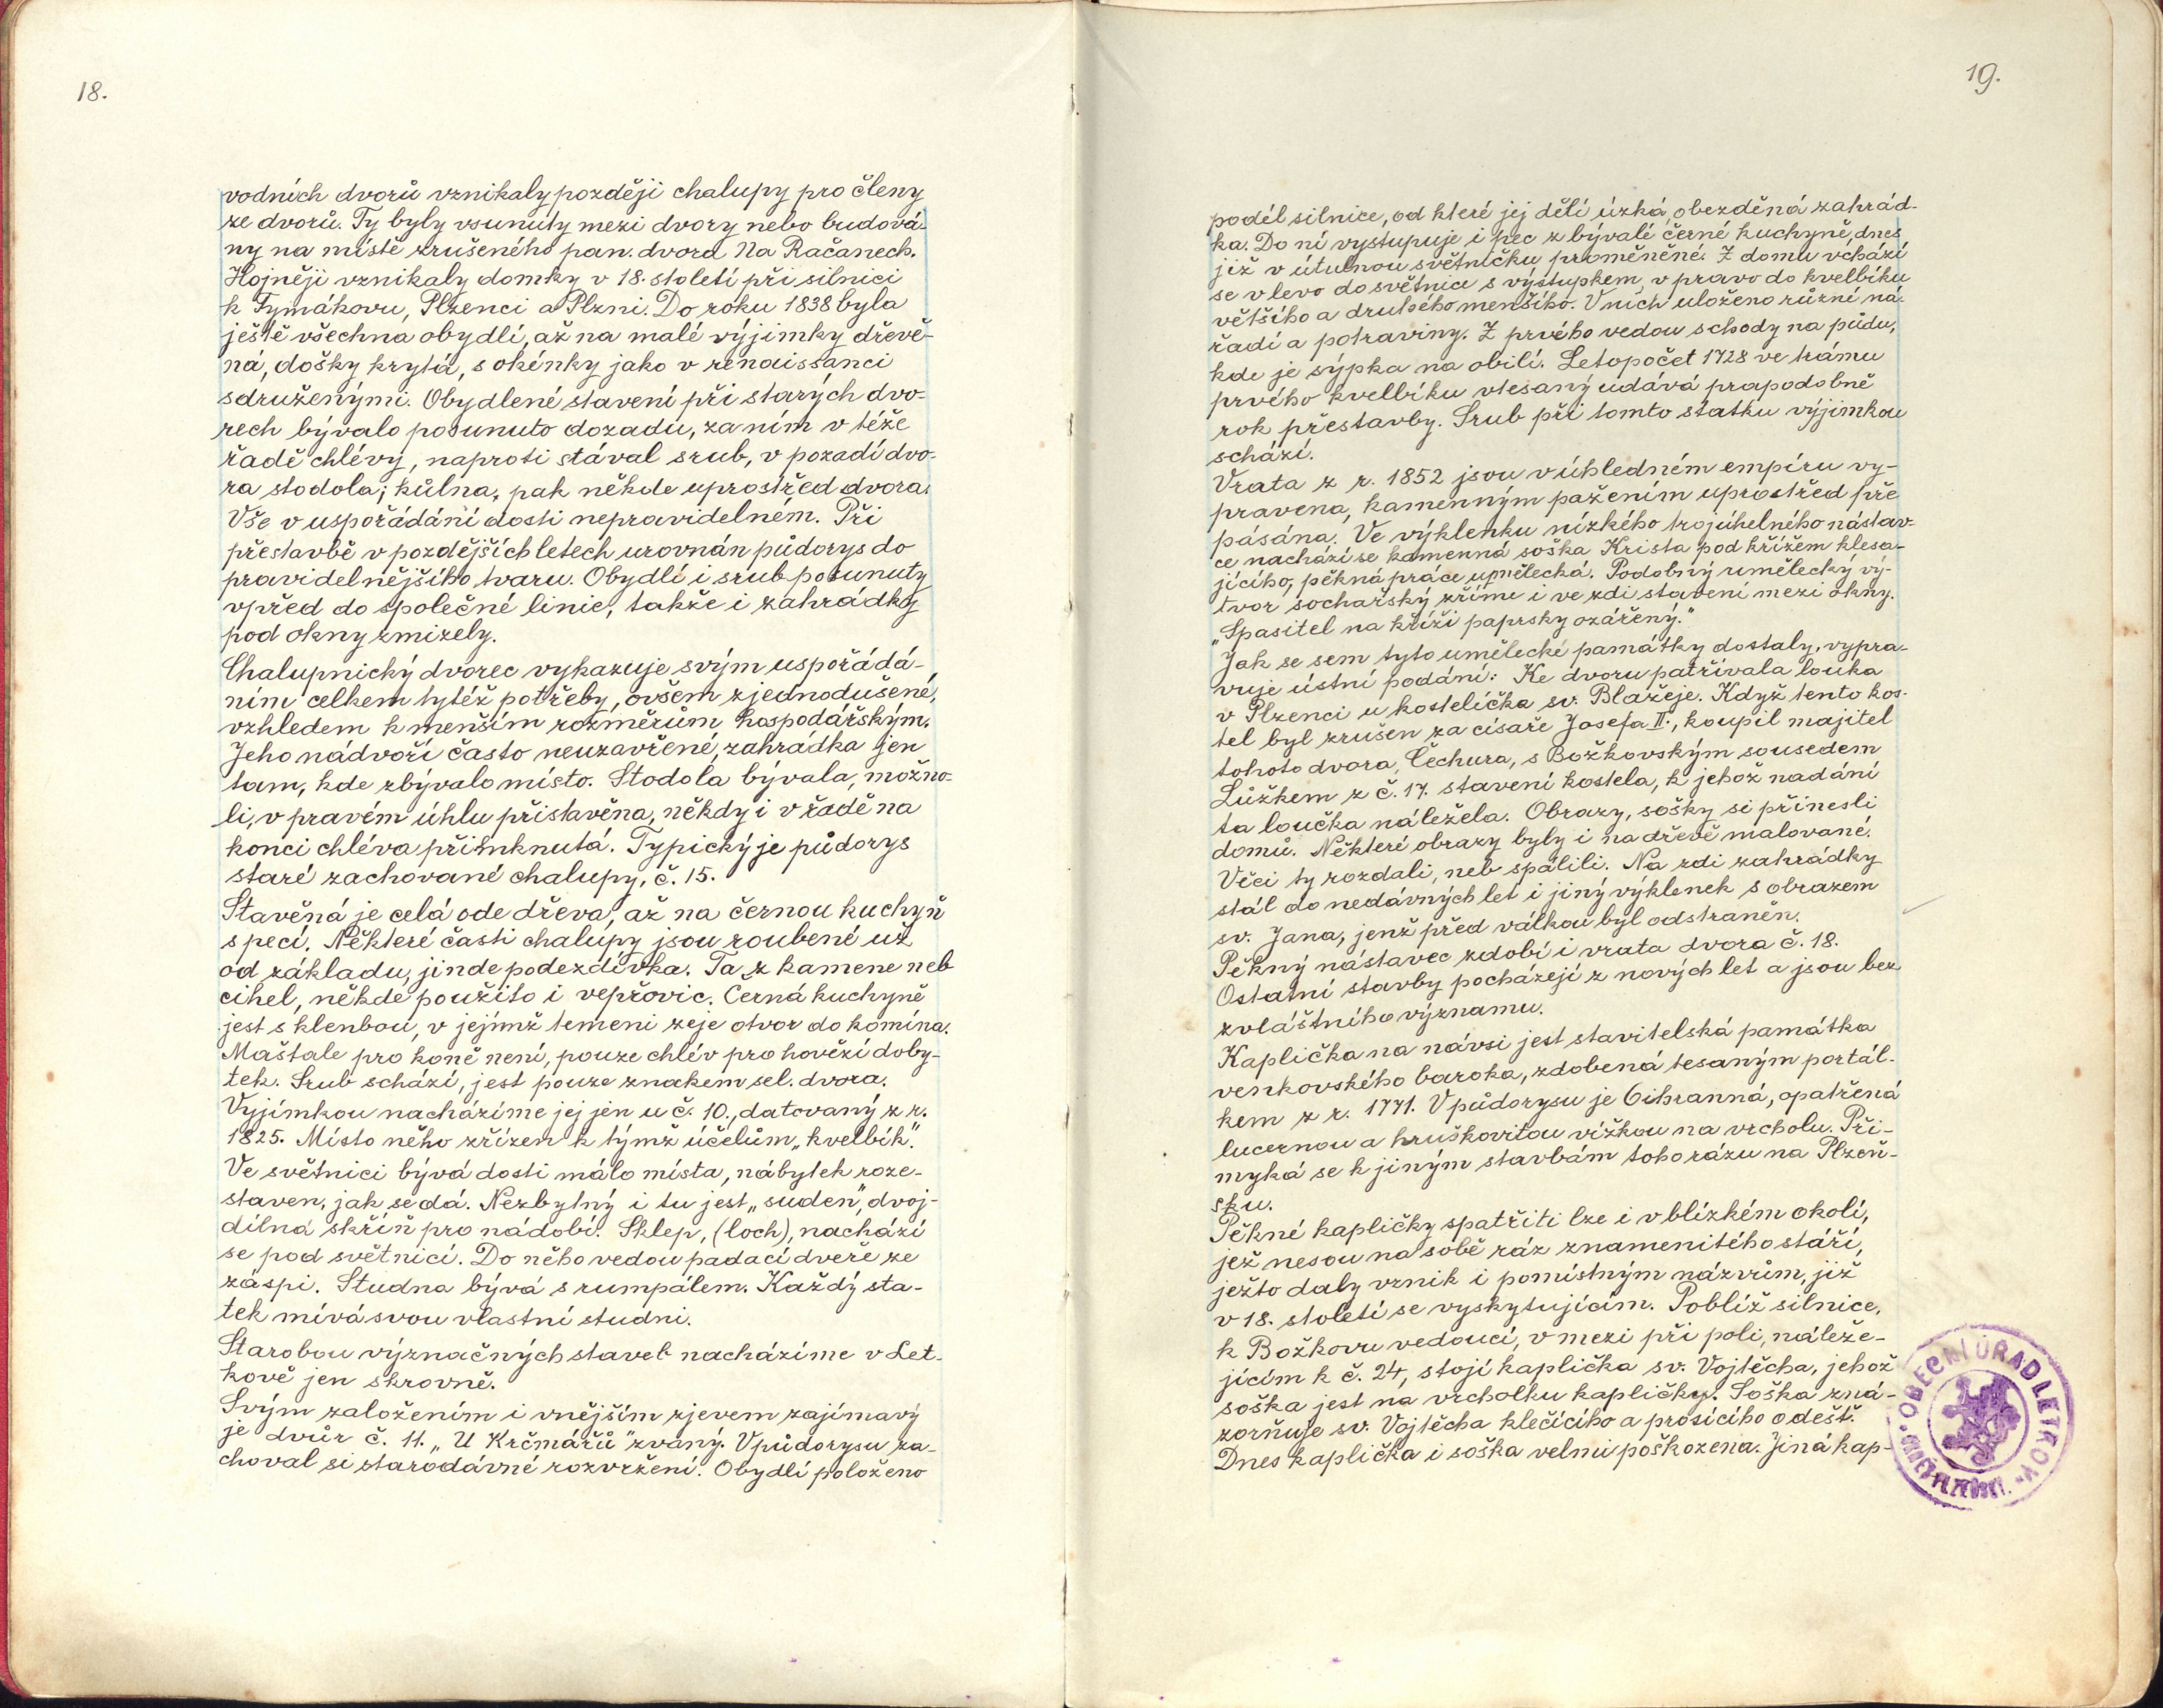 18.
vodních dvorů vznikaly později chalupy pro členy
ze dvorů. Ty byly vsunuty mezi dvory nebo budová-
ny na místě zrušeného pan. dvora Na Račanech.
Hojněji vznikaly domky v 18. století při silnici
k Tymákovu, Plzenci a Plzni. Do roku 1838 byla
ještě všechna obydlí, až na malé výjimky dřevě-
ná, došky krytá, s okénky jako v renaissanci
sdruženými. Obydlené stavení při starých dvo-
rech bývalo posunuto dozadu, za ním v téže
řadě chlévy, naproti stával srub, v pozadí dvo-
ra stodola; kůlna, pak někde uprostřed dvora.
Vše v uspořádání dosti nepravidelném. Při
přestavbě v pozdějších letech urovnán půdorys do
pravidelnějšího tvaru. Obydlí i srub posunuty
vpřed do společné linie, takže i zahrádky
pod okny zmizely.
Chalupnický dvorec vykazuje svým uspořádá-
ním celkem tytéž potřeby, ovšem zjednodušené,
vzhledem k menším rozměrům hospodářským.
Jeho nádvoří často neuzavřené, zahrádka jen
tam, kde zbývalo místo. Stodola bývala, možno-
li, v pravém úhlu přistavěna, někdy i v řadě na
konci chléva přimknutá. Typický je půdorys
staré zachované chalupy, č. 15.
Stavěná je celá ode dřeva, až na černou kuchyň
s pecí. Některé části chalupy jsou roubené už
od základu, jinde podezdívka. Ta z kamene neb
cihel, někde použito i vepřovic. Černá kuchyně
jest s klenbou, v jejímž temeni zeje otvor do komína.
Maštale pro koně není, pouze chlév pro hovězí doby-
tek. Srub schází, jest pouze znakem sel. dvora.
Vyjímkou nacházíme jej jen u č. 10., datovaný z r.
1825. Místo něho zřízen k týmž účelům „kvelbík".
Ve světnici bývá dosti málo místa, nábytek roze-
staven, jak se dá. Nezbytný i tu jest „suden", dvoj-
dílná skříň pro nádobí. Sklep, (loch), nachází
se pod světnicí. Do něho vedou padací dveře ze
záspi. Studna bývá s rumpálem. Každý sta-
tek mívá svou vlastní studni.
Starobou význačných staveb nacházíme v Let-
kově jen skrovně.
Svým založením i vnějším zjevem zajímavý
je dvůr č. 11. „U Krčmářů" zvaný. V půdorysu za-
choval si starodávné rozvržení. Obydlí položeno
19.
podél silnice, od které jej dělí úzká, obezděná zahrád-
ka. Do ní vystupuje i pec z bývalé černé kuchyně, dnes
již v útulnou světničku proměněné. Z domu vchází
se v levo do světnice s výstupkem, v pravo do kvelbíku
většího a druhého menšího. V nich uloženo různé ná-
řadí a potraviny. Z prvého vedou schody na půdu,
kde je sýpka na obilí. Letopočet 1728 ve trámu
prvého kvelbíku vtesaný udává prapodobně
rok přestavby. Srub při tomto statku výjimkou
schází.
Vrata z r. 1852 jsou v úhledném empíru vy-
pravena, kamenným pažením uprostřed pře
pásána. Ve výklenku nízkého trojúhelného nástav-
ce nachází se kamenná soška Krista pod křížem klesa-
jícího, pěkná práce umělecká. Podobný umělecký vý-
tvor sochařský zříme i ve zdi stavení mezi okny.
„Spasitel na kříži paprsky ozářený."
Jak se sem tyto umělecké památky dostaly, vypra-
vuje ústní podání: Ke dvoru patřívala louka
v Plzenci u kostelíčka sv. Blažeje. Když tento kos-
tel byl zrušen za císaře Josefa II., koupil majitel
tohoto dvora, Čechura, s Božkovským sousedem
Lůžkem z č. 17. stavení kostela, k jehož nadání
ta loučka náležela. Obrazy, sošky si přinesli
domů. Některé obrazy byly i na dřevě malované.
Věci ty rozdali, neb spálili. Na zdi zahrádky
stál do nedávných let i jiný výklenek s obrazem
sv. Jana, jenž před válkou byl odstraněn.
Pěkný nástavec zdobí i vrata dvora č. 18.
Ostatní stavby pocházejí z nových let a jsou bez
zvláštního významu.
Kaplička na návsi jest stavitelská památka
venkovského baroka, zdobená tesaným portál-
kem z r. 1771. V půdorysu je 6ihranná, opatřená
lucernou a hruškovitou vížkou na vrcholu. Při-
myká se k jiným stavbám toho rázu na Plzeň-
sku.
Pěkné kapličky spatřiti lze i v blízkém okolí,
jež nesou na sobě ráz znamenitého stáří,
ježto daly vznik i pomístným názvům, již
v 18. století se vyskytujícím. Poblíž silnice,
k Božkovu vedoucí, v mezi při poli, náleže-
jícím k č. 24, stojí kaplička sv. Vojtěcha, jehož
soška jest na vrcholku kapličky. Soška zná-
zorňuje sv. Vojtěcha klečícího a prosícího o déšť.
Dnes kaplička i soška velmi poškozena. Jiná kap-
OBECNÍ ÚŘAD LETKOV